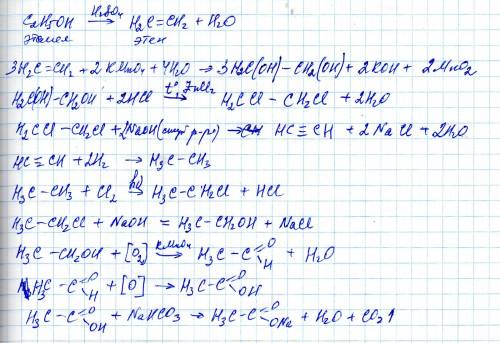 C₂H₅OH —H₂SO₄→ H₂C=CH₂ + H₂O
этанол этен
3H₂C=CH₂ + 2KMnO₄ + 4H₂O → 3H₂C(OH)-CH₂(OH) + 2KOH + 2MnO₂
H₂C(OH)-CH₂OH + 2HCl —t°, ZnCl₂→ H₂CCl-CH₂Cl + 2H₂O
H₂CCl-CH₂Cl + 2NaOH (спирт р-р) → HC≡CH + 2NaCl + 2H₂O
HC≡CH + 2H₂ → H₃C-CH₃
H₃C-CH₃ + Cl₂ —hν→ H₃C-CH₂Cl + HCl
H₃C-CH₂Cl + NaOH = H₃C-CH₂OH + NaCl
H₃C-CH₂OH + [O] —KMnO₄→ H₃C-C=O H + H₂O
H₃C-C=O H + [O] → H₃C-C=O OH
H₃C-C=O OH + NaHCO₃ → H₃C-C=O ONa + H₂O + CO₂↑